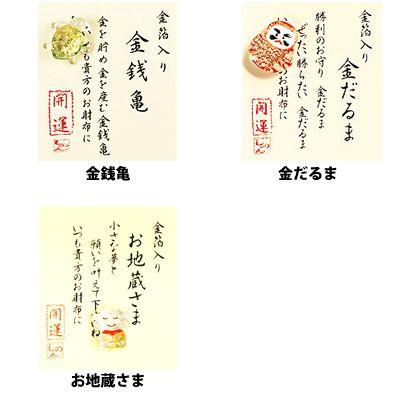 金箔入り
金銭亀
金を貯め 金を産む 金銭亀
いつも貴方のお財布に
開運
金銭亀
金箔入り
金だるま
勝利のお守り 金だるま
ぜったい勝ちたい 金だるま
のお財布に
開運
金だるま
金箔入り
お地蔵さま
小さな夢と
願いを叶えて下
いね
いつも貴方のお財布に
開運
お地蔵さま